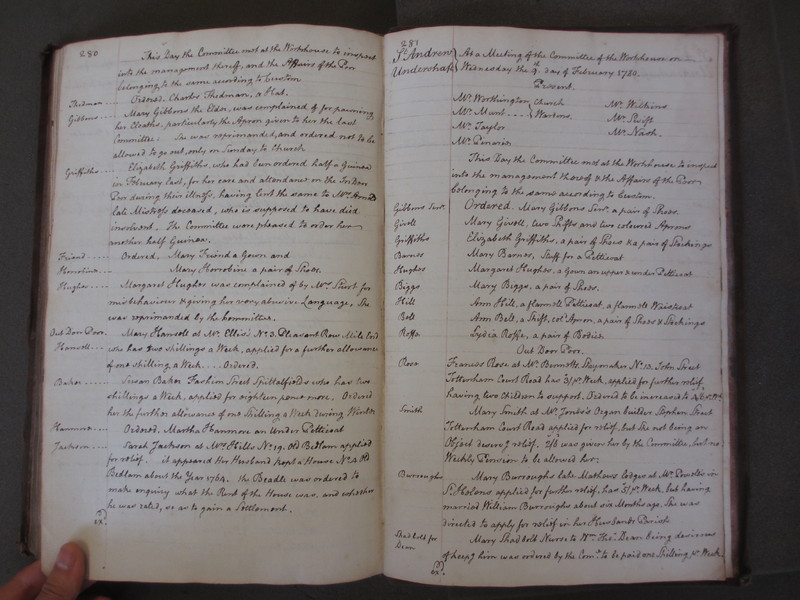 280
This Day the Committee met at the Workhouse to inspect
into the management thereof, and the Affairs of the Poor
belonging to the same according to Custom
Thedman.... Ordered, Charles Thedman, a Hat.
Gibbons.... Mary Gibbons the Elder, was complained of for pawning
her Cloaths, particularly the Apron given to her the last
Committee. She was reprimanded, and ordered not to be
allowed to go out, only on Sunday to Church
Griffiths.... Elizabeth Griffiths, who had been ordered half a Guinea
in February last, for her care and attendance on the In Door
Poor during their illness, having lent the same to Mrs.
late Mistress deceased, who is supposed to have died
insolvent. The Committee were pleased to order her
another half Guinea.
Friend.... Ordered, Mary Friend a Gown and
Horrobine... Mary Horrobine a pair of Shoes.
Hughes.... Margaret Hughes was complained of by Mrs. Short for
misbehaviour & giving her very abusive Language, She
was reprimanded by the Committee.
Out Door Poor. Mary Hansoll at Mr. Ellis's No. 3. Pleasant Row Mile End
Hansoll... who has two shillings a Week, applied for a further allowance
of one shilling a Week.... Ordered.
Baker..... Susan Baker Fashion Street Spittalfields who has two
shillings a Week, applied for eighteen pence more. Ordered
her the further allowance of one Shilling a Week during Winter
Hanmore... Ordered. Martha Hanmore an Under Petticoat
Jackson.... Sarah Jackson at Mrs. Hills No. 19. Old Bedlam applied
for relief. it appeared Her Husband kept a House No. 4 Old
Bedlam about the Year 1764. the Beadle was ordered to
make enquiry what the Rent of the House was, and whether
he was rated, so as to gain a Settlement.
281
St. Andrew Undershaft
At a Meeting of the Committee of the Workhouse on
Wednesday the 9th. day of February 1780.
Present.
Mr. Worthington Church Mr. Wilkins
Mr. Munt.... Wardens. Mr. Swift
Mr. Taylor Mr. Nash.
Mr.
This Day the Committee met at the Workhouse to inspect
into the management thereof & the Affairs of the Poor
belonging to the same according to Custom.
Gibbons Senr. Ordered. Mary Gibbons Senr. a pair of Shoes.
Givoll Mary Givoll, two Shifts and two coloured Aprons
Griffiths Elizabeth Griffiths, a pair of Shoes & a pair of Stockings
Barnes Mary Barnes, Stuff for a Petticoat
Hughes Margaret Hughes, a Gown an upper & under Petticoat
Biggs Mary Biggs, a pair of Shoes.
Hill Ann Hill, a flannell Petticoat, a flannell Waistcoat
Bolt Ann Bolt, a Shift, cold. Apron, a pair of Shoes & Stockings
Roffe Lydia Roffe, a pair of Bodies
Out Door Poor.
Rose Francis Rose at Mr. Bennetts Staymaker No. 13. John Street
Tottenham Court Road has 3/ pr. Week, applied for further relief,
having two Children to support. Ordered to be increased to
Smith Mary Smith at Mr. Jones's Organ builder Stephen Street
Tottenham Court Road applied for relief, but She not being an
Object deservg. relief. 2/6 was given her by the Committee, but no
Weekly Pension to be allowed her.
Burroughs Mary Burroughs late Mathews lodges at Mr. Powell's in
St. Helens applied for further relief, has 3/ pr. Week, but having
married William Burroughs about six Months ago, She was
directed to apply for relief in her Husbands Parish
Shadbolt for Dean
Mary Shadbolt Nurse to Wm. Thos. Dean being desirous
of keepg. him was ordered by the Comee. to be paid one Shilling pr. Week